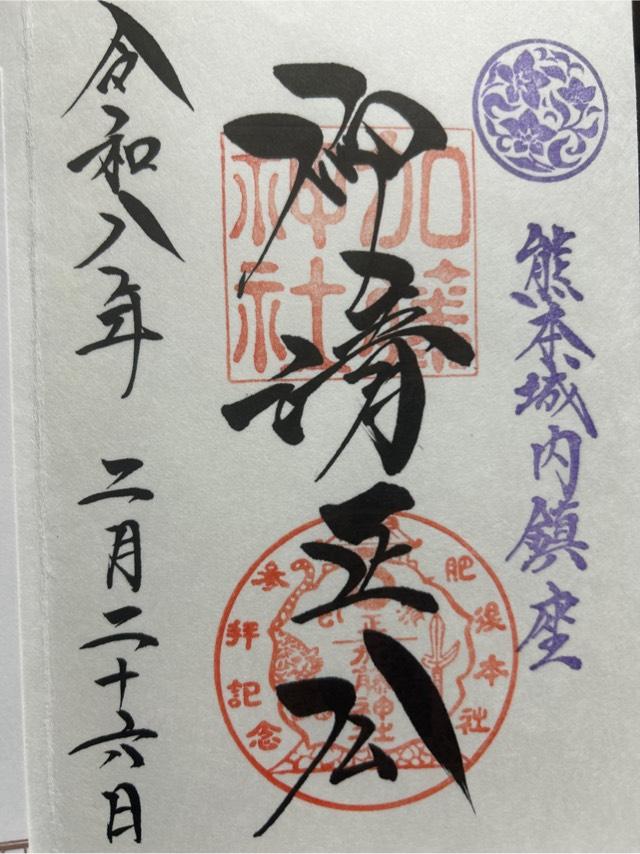 熊本城内鎮座
清正公
加藤神社
肥後本社
参拝記念
令和八年 二月二十六日